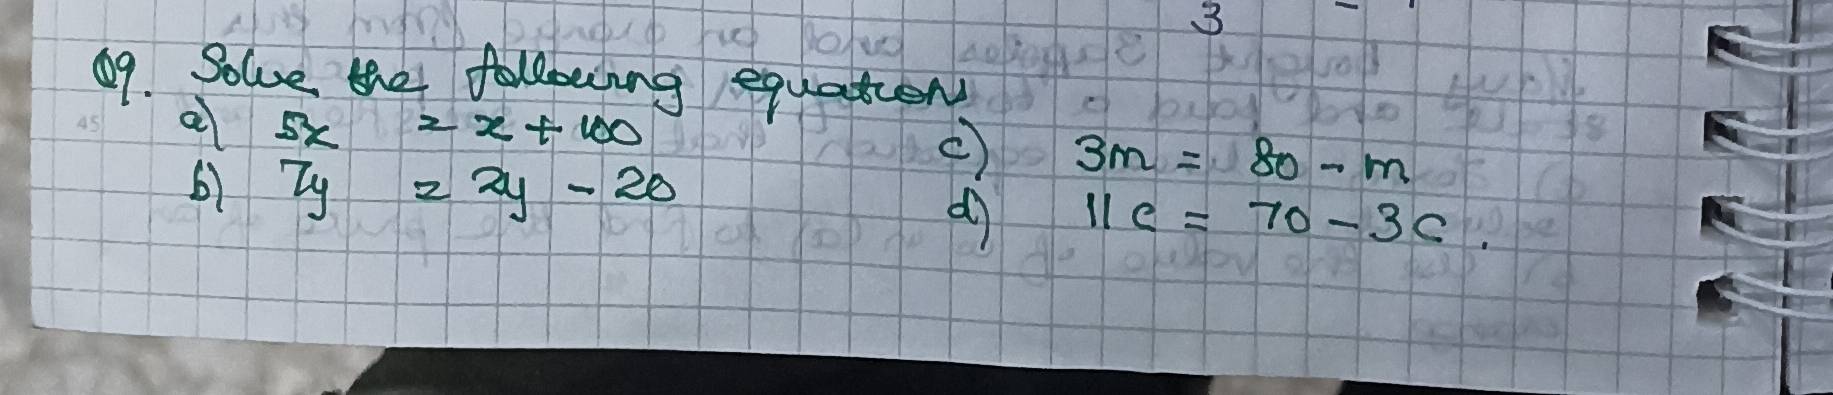 3
Q9. Solve the following equations
a) 5x = x + 100
b) 7y = 2y - 20
c) 3m = 80 - m
d) 11c = 70 - 3c.